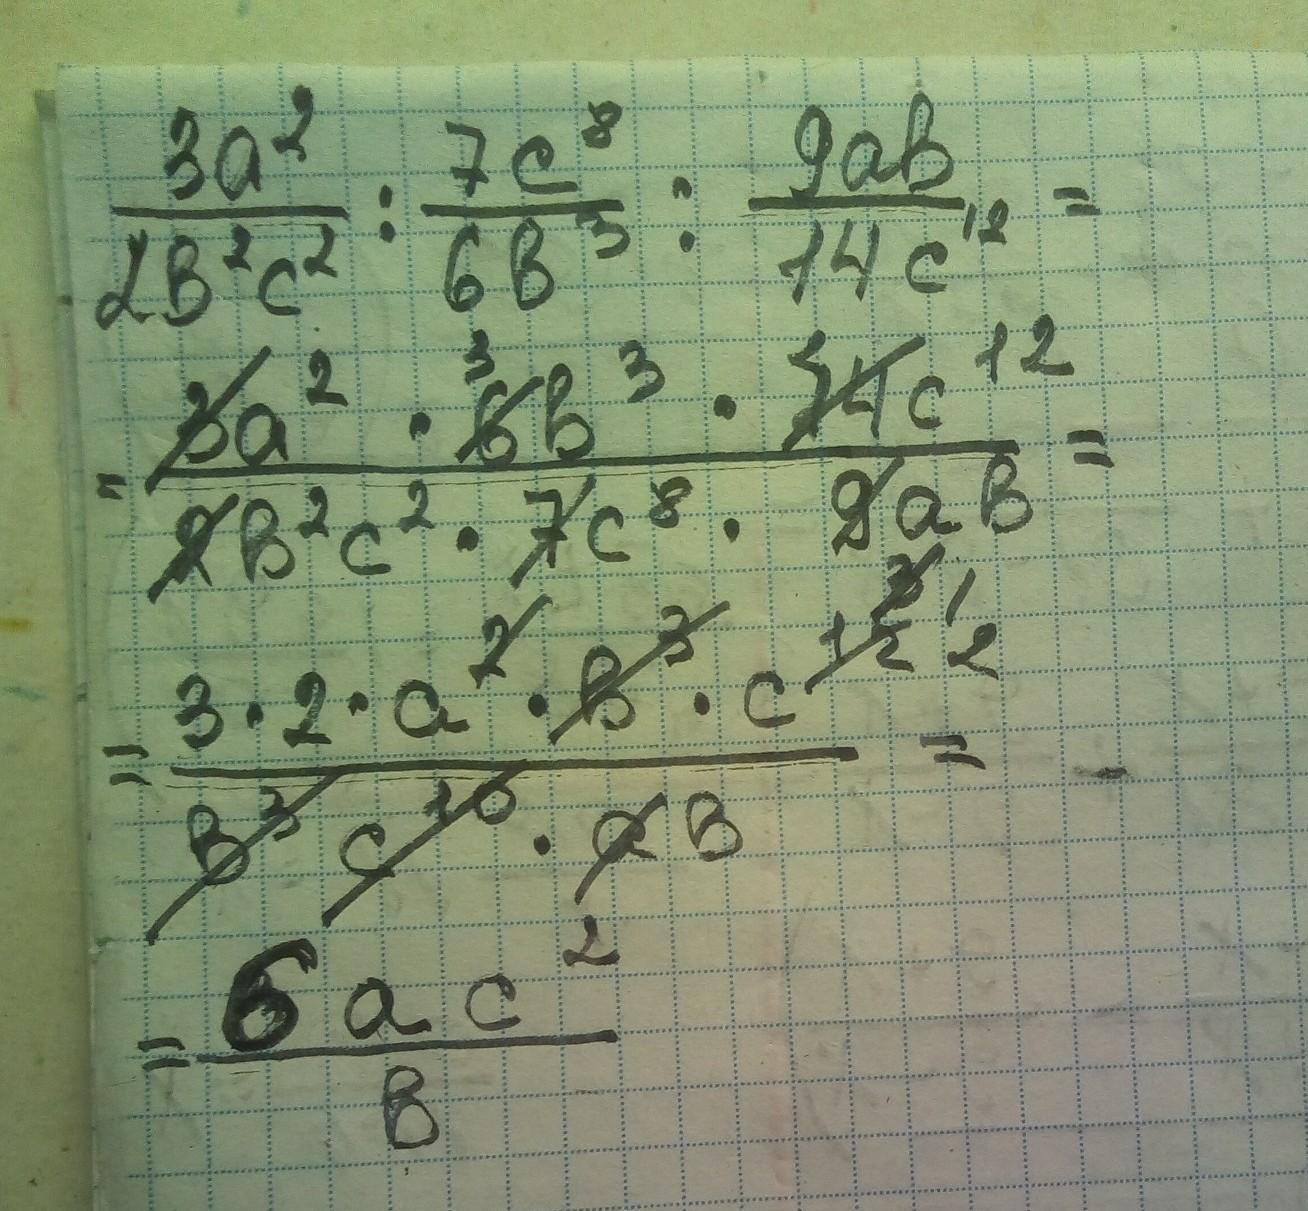 3a² / 2в²c² : 7c⁸ / 6в³ : 9aв / 14c¹² =
= 3a² · 6в³ · 14c¹² / 2в²c² · 7c⁸ · 9aв =
= 3 · 2 · a² · в³ · c¹² ² / в³ c¹⁰ · aв =
= 6ac² / в